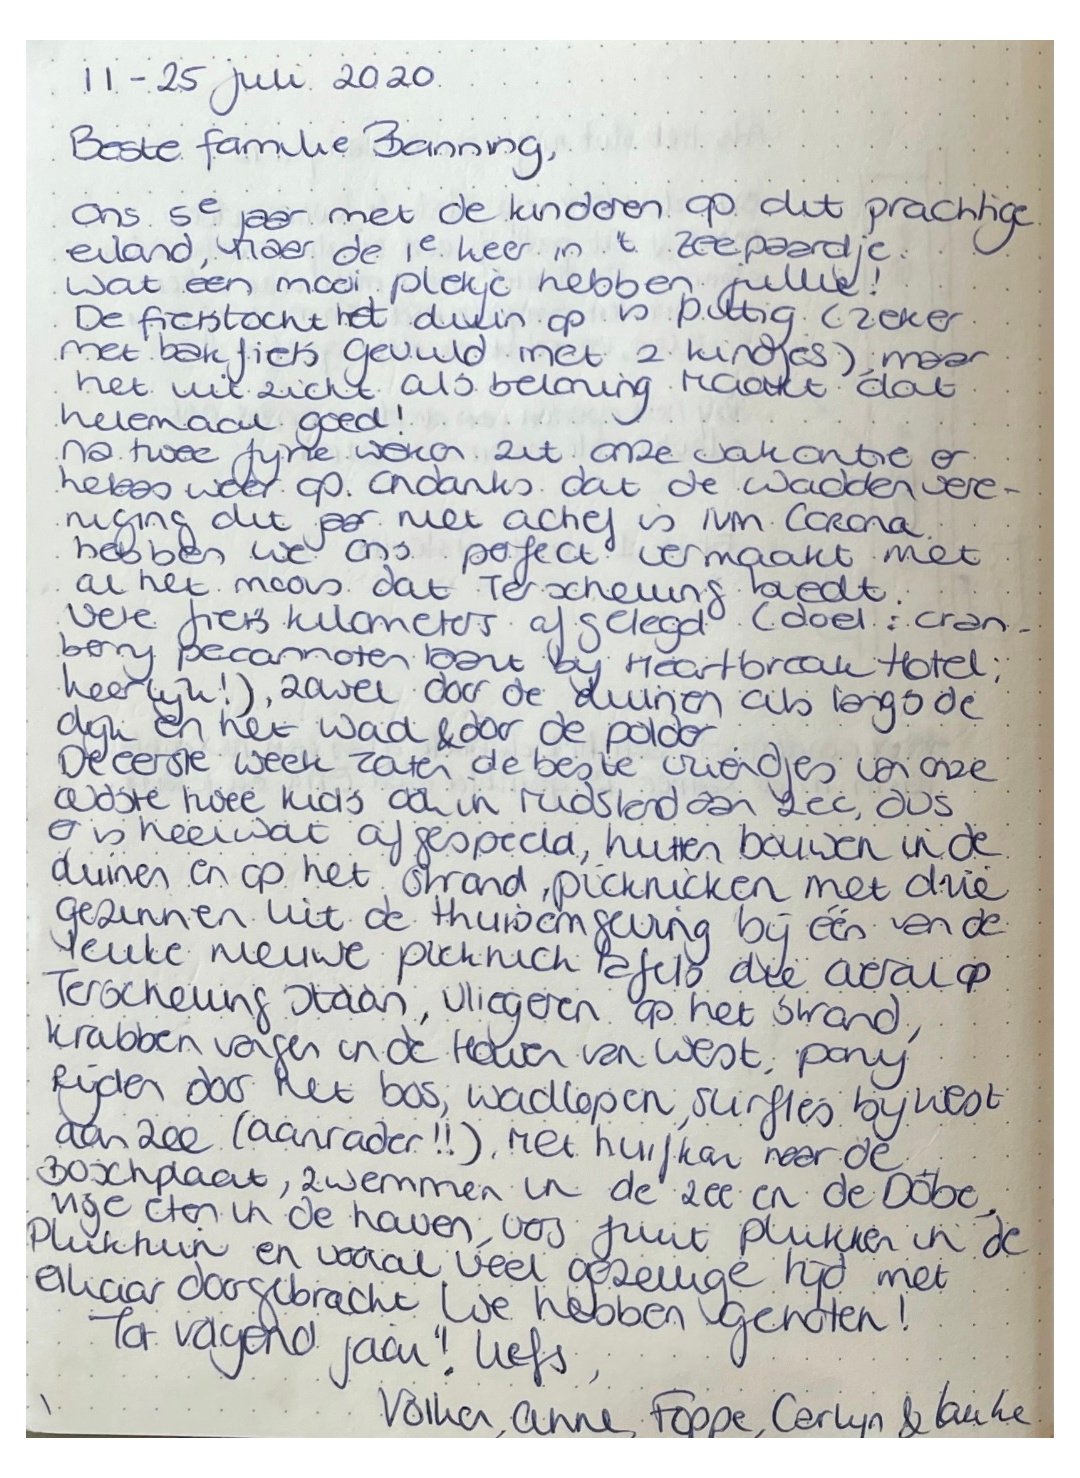 11-25 juli 2020
Beste familie Banning,
Ons 5e jaar met de kinderen op dit prachtige
eiland, maar de 1e keer in 't Zeepaardje.
wat een mooi plekje hebben jullie!
De fietstocht het duin op is pittig (zeker
met bakfiets gevuld met 2 kindjes), maar
het uitzicht als beloning maakt dat
helemaal goed!
Na twee fijne weken zit onze vakantie er
helaas weer op. Ondanks dat de Waddenvere-
niging dit jaar niet actief is ivm Corona
hebben we ons perfect vermaakt met
al het moois dat Terschelling biedt.
Vele fietskilometers afgelegd (doel: cran-
berry pecannoten taart bij Heartbreak Hotel;
heerlijk!), zowel door de duinen als langs de
dijk en het wad & door de polder.
De eerste week zaten de beste vriendjes van onze
oudste twee kids ook in Midsland aan Zee, dus
er is heel wat afgespeeld, hutten bouwen in de
duinen en op het strand, picknicken met drie
gezinnen uit de thuisomgeving bij één van de
leuke nieuwe picknick tafels die overal op
Terschelling staan, vliegeren op het strand,
krabben vangen in de Haven van West, pony
rijden door het bos, wadlopen, surfles bij West
aan Zee (aanrader!!), met huifkar naar de
Boschplaat, zwemmen in de zee en de Döbe,
ijsje eten in de haven, vers fruit plukken in de
Pluktuin en vooral veel gezellige tijd met
elkaar doorgebracht. We hebben genoten!
Tot volgend jaar! Liefs,
Volker, Anne, Foppe, Carlijn & Lauke